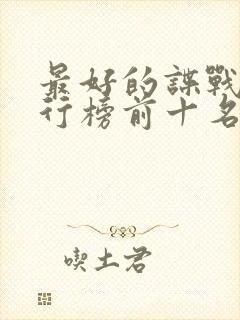 最好的諜戰
行榜前十名
喫土君